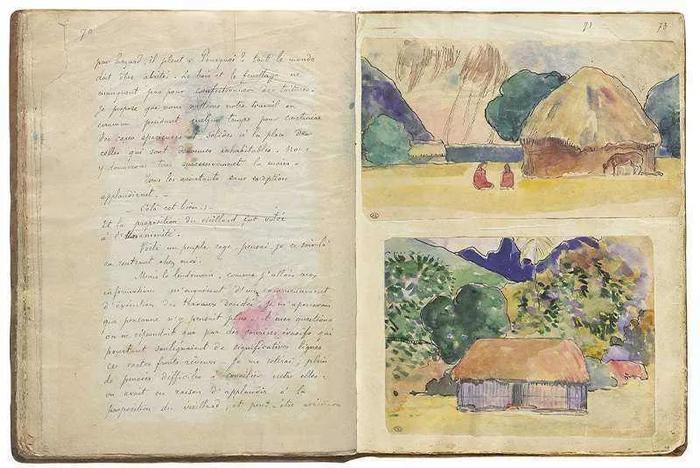 70
par hasard il pleut. Pourquoi ? tout le monde
doit être abrité. Le bois et le feuillage ne
manquent pas pour confectionner des toitures.
Je propose que nous mettions notre travail en
commun pendant quelque temps pour construire
des cases spacieuses et solides à la place de
celles qui sont devenues inhabitables. Nous
y donnerons tous successivement la main. —
Tous les assistants sans exception
applaudirent. —
— Cela est bien ! —
Et la proposition du vieillard fut votée
à l'unanimité.
Voilà un peuple sage, pensai-je ce soir-là
en rentrant chez moi.
Mais le lendemain, comme j'allais aux
informations m'enquérant d'un commencement
d'exécution des travaux décidés, je m'aperçus
que personne n'y pensait plus. A mes questions
on ne répondait que par des sourires évasifs qui
pourtant soulignaient de significatives lignes
ces vastes fronts rêveurs. Je me retirai, plein
de pensées difficiles à concilier entre elles :
on avait eu raison d'applaudir à la
proposition du vieillard, et peut-être
73